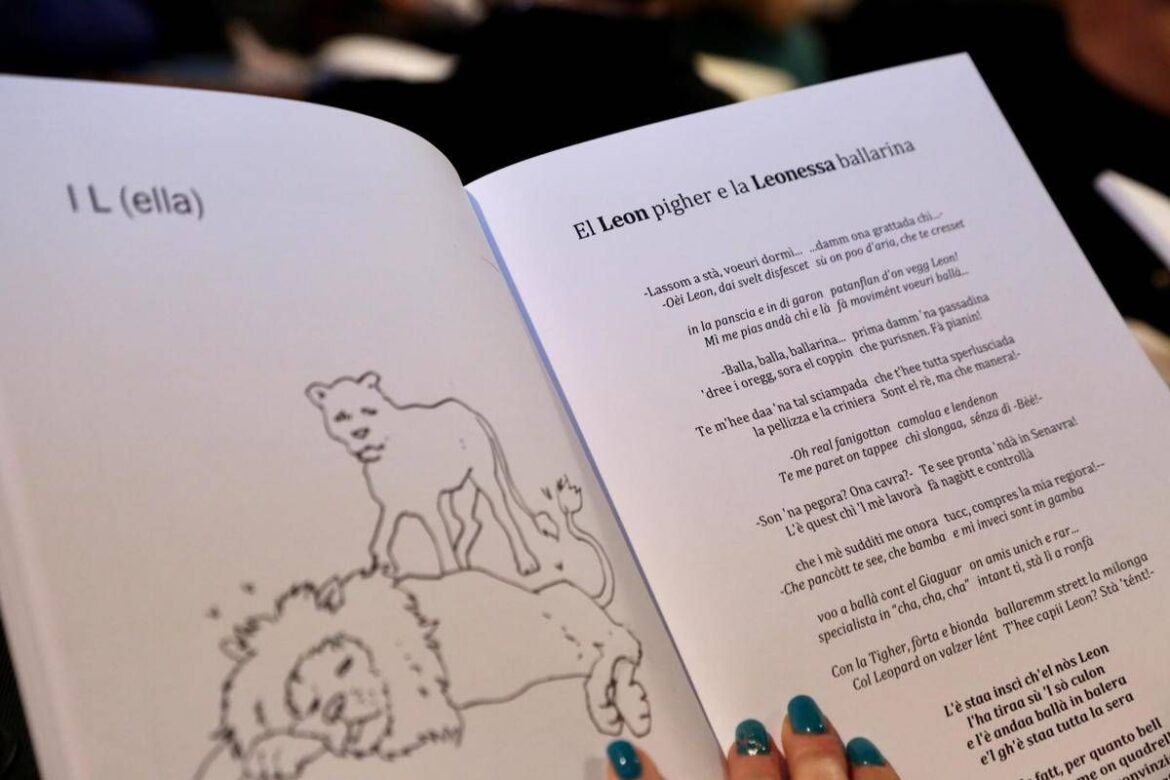 I L (ella)
El Leon pigher e la Leonessa ballarina
-Lassom a stà, voeuri dormì... ...damm ona grattada chi...-
-Oèi Leon, dai svelt disfescet sù on poo d'aria, che te cresset
in la panscia e in di garon patanflan d'on vegg Leon!
Mì me pias andà chì e là fà movimént voeuri ballà...
-Balla, balla, ballarina... prima damm 'na passadina
'dree i oregg, sora el coppin che purisnen. Fà pianin!
Te m'hee daa 'na tal sciampada che t'hee tutta sperlusciada
la pellizza e la criniera Sont el rè, ma che manera!-
-Oh real fanigotton camolaa e lendenon
Te me paret on tappee chì slongaa, sénza dì -Bèè!-
-Son 'na pegora? Ona cavra?- Te see pronta 'ndà in Senavra!
L'è quest chì 'l mè lavorà fà nagòtt e controllà
che i mè sudditi me onora tucc, compres la mia regiora!--
-Che pancòtt te see, che bamba e mi inveci sont in gamba
voo a ballà cont el Giaguar on amis unich e rar...
specialista in "cha, cha, cha" intant ti, stà lì a ronfà
Con la Tigher, fòrta e bionda ballaremm strett la milonga
Col Leopard on valzer lént T'hee capii Leon? Stà 'tént!-
L'è staa inscì ch'el nòs Leon
l'ha tiraa sù 'l sò culon
e l'è andaa ballà in balera
e'l gh'è staa tutta la sera
fatt, per quanto bell
on quadrell